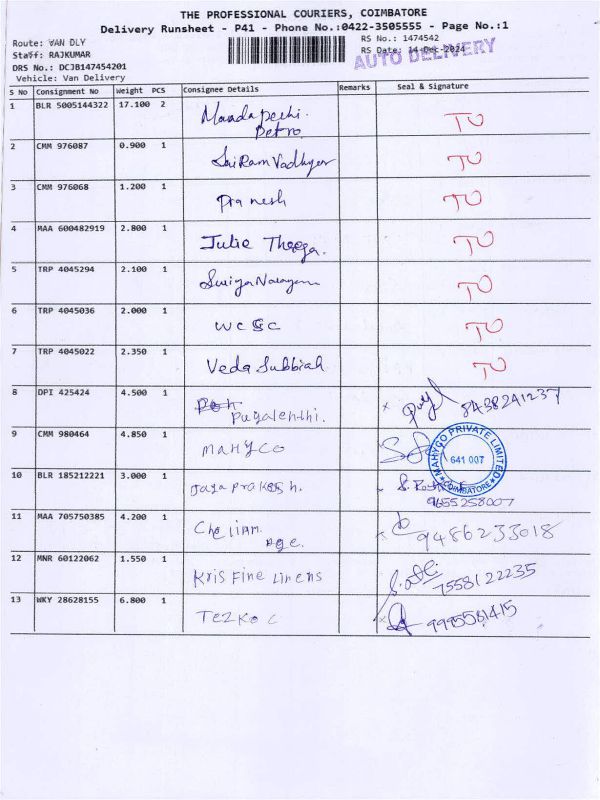 THE PROFESSIONAL COURIERS, COIMBATORE
Delivery Runsheet - P41 - Phone No.:0422-3505555 - Page No.:1
Route: VAN DLY
RS No.: 1474542
Staff: RAJKUMAR
RS Date: 14-Dec-2024
AUTO DELIVERY
DRS No.: DCJB147454201
Vehicle: Van Delivery
S No Consignment No Weight PCS Consignee Details Remarks Seal & Signature
1 BLR 5005144322 17.100 2 Petro TO
2 CMM 976087 0.900 1 SaiRam Vadhyar TO
3 CMM 976068 1.200 1 Pranesh TO
4 MAA 600482919 2.800 1 Julie TO
5 TRP 4045294 2.100 1 TO
6 TRP 4045036 2.000 1 TO
7 TRP 4045022 2.350 1 Veda Subbiah TO
8 DPI 425424 4.500 1 Pugalenthi. 8438241237
9 CMM 980464 4.850 1 MAHYCO
MAHYCO PRIVATE LIMITED
641 007
COIMBATORE
10 BLR 185212221 3.000 1 Jaya prakash.
9655258007
11 MAA 705750385 4.200 1 9486233018
12 MNR 60122062 1.550 1 Kris Fine Linens 7558122235
13 WKY 28628155 6.800 1 9995581415